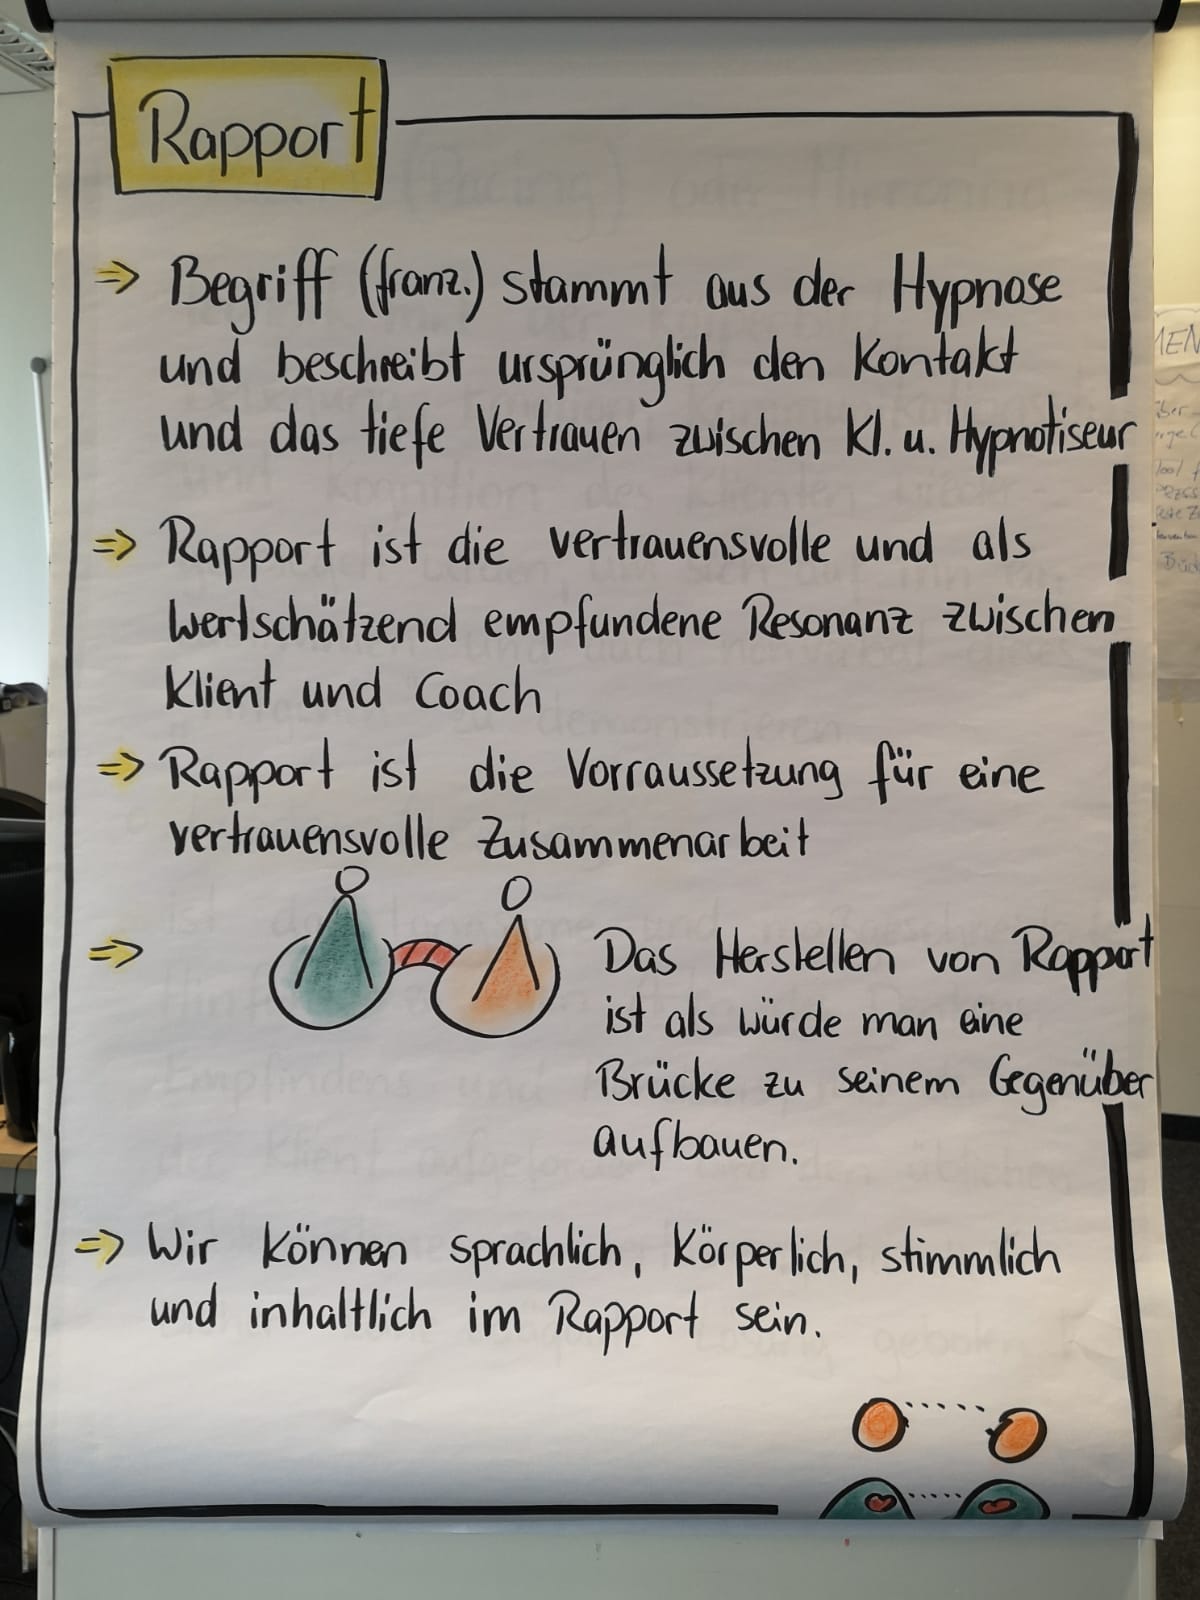 Rapport
⇒ Begriff (franz.) stammt aus der Hypnose
und beschreibt ursprünglich den Kontakt
und das tiefe Vertrauen zwischen Kl. u. Hypnotiseur
⇒ Rapport ist die vertrauensvolle und als
wertschätzend empfundene Resonanz zwischen
Klient und Coach
⇒ Rapport ist die Vorraussetzung für eine
vertrauensvolle Zusammenarbeit
⇒ Das Herstellen von Rapport
ist als würde man eine
Brücke zu seinem Gegenüber
aufbauen.
⇒ Wir können sprachlich, körperlich, stimmlich
und inhaltlich im Rapport sein.